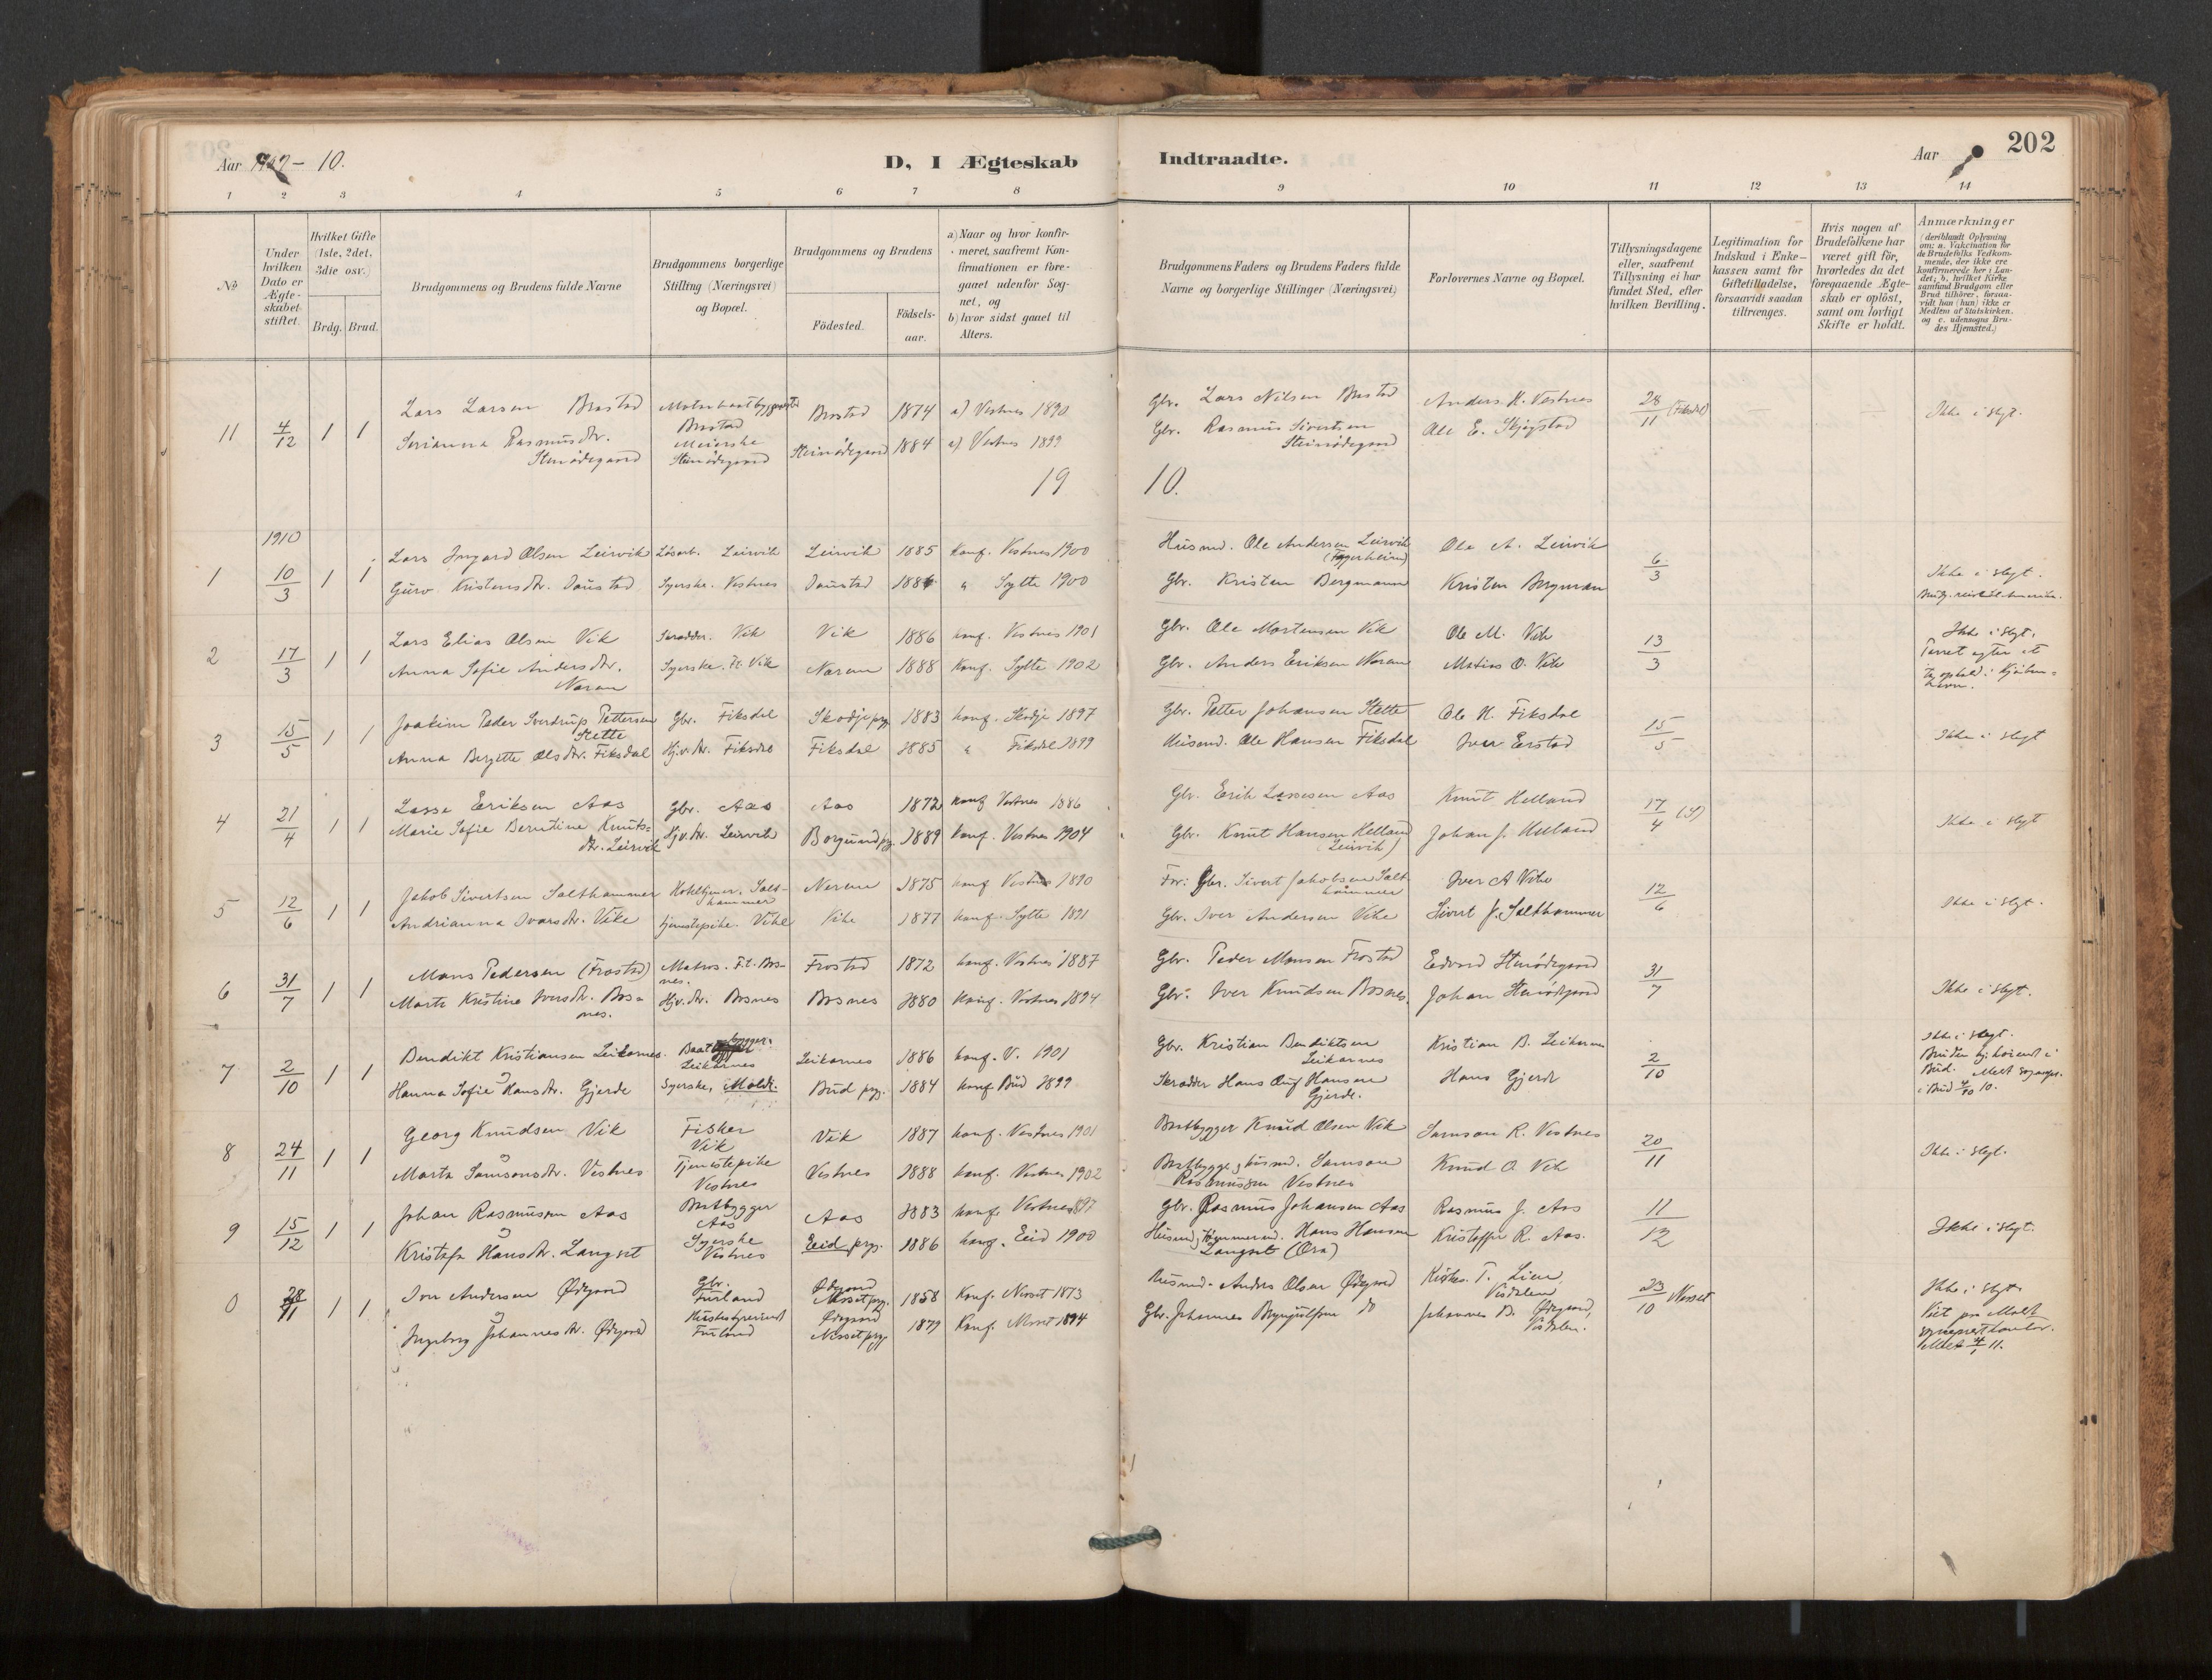 Aar 1909 - 10.
D, I Ægteskab Indtraadte.
Aar
202
1 2 3 4 5 6 7 8 9 10 11 12 13 14
No
Under hvilken Dato er Ægteskabet stiftet.
Hvilket Gifte (1ste, 2det, 3die osv.)
Brdg. Brud.
Brudgommens og Brudens fulde Navne
Brudgommens borgerlige Stilling (Næringsvei) og Bopæl.
Brudgommens og Brudens
Födested. Födselsaar.
a) Naar og hvor konfirmeret, saafremt Konfirmationen er foregaaet udenfor Sognet, og
b) hvor sidst gaaet til Alters.
Brudgommens Faders og Brudens Faders fulde Navne og borgerlige Stillinger (Næringsvei)
Forlovernes Navne og Bopæl.
Tillysningsdagene eller, saafremt Tillysning ei har fundet Sted, efter hvilken Bevilling.
Legitimation for Indskud i Enkekassen samt for Giftetilladelse, forsaavidt saadan tiltrænges.
Hvis nogen af Brudefolkene har været gift för, hvorledes da det foregaaende Ægteskab er oplöst, samt om lovligt Skifte er holdt.
Anmærkninger (deriblandt Oplysning om: a. Vakcination for de Brudefolks Vedkommende, der ikke ere konfirmerede her i Landet; b. hvilket Kirkesamfund Brudgom eller Brud tilhörer, forsaavidt han (hun) ikke er Medlem af Statskirken. og c. udensogns Brudes Hjemsted.)
11 4/12 1 1 Lars Larsen Brastad Motorbaatbygger Brastad Brastad 1874 a) Vestnes 1890 Gbr. Lars Nilsen Brastad Anders K. Vestnes 28/11 (Fiksdal) Ikke i slgt.
Rasmusdr. Stenødegaard Meierske Stenødegaard Steinødegaard 1884 a) Vestnes 1899 Gbr. Rasmus Sivertsen Steinødegaard Ole E. Skjegstad
1910.
1910
1 10/3 1 1 Lars Ingard Olsen Leirvik Løsarb. Leirvik Leirvik 1885 Konf. Vestnes 1900 Husmd. Ole Andersen Leirvik (Fagerheim) Ole A. Leirvik 6/3 Ikke i slgt.
Guro Kristensdr. Daustad Syerske. Vestnes Daustad 1886 " Sylte 1900 Gbr. Kristen Bergmann Kristen Bergman
2 17/3 1 1 Lars Elias Olsen Vik Skrædder. Vik Vik 1886 konf. Vestnes 1901 Gbr. Ole Mortensen Vik Ole M. Vik 13/3 Ikke i slgt.
Anna Sofie Andersdr. Naram Syerske. Ft. Vik Naram 1888 Konf. Sylte 1902 Gbr. Anders Eriksen Naram Matias O. Vik
3 15/5 1 1 Joakim Peder Sverdrup Pettersen Stette Gbr. Fiksdal Skodje prg. 1883 konf. Skodje 1897 Gbr. Petter Johansen Stette Ole K. Fiksdal 15/5 Ikke i slegt
Anna Bergitte Olsdr. Fiksdal Hjv. dr. Fiksdal Fiksdal 1885 " Fiksdal 1899 Husmd. Ole Hansen Fiksdal Iver Erstad
4 21/4 1 1 Lasse Eriksen Aas Gbr. Aas Aas 1872 konf Vestnes 1886 Gbr. Erik Lassesen Aas Knut Helland 17/4 (S) Ikke i slegt
Marie Sofie Berntine Knutsdr. Leirvik Hjv. dr. Leirvik Borgund prg. 1889 konf. Vestnes 1904 Gbr. Knut Hansen Helland (Leirvik) Johan J. Helland
5 12/6 1 1 Jakob Sivertsen Salthammer Hoteltjener. Salthammer Nerem 1875 konf Vestnes 1890 For: Gbr. Sivert Jakobsen Salthammer Iver A Vike 12/6 Ikke i slgt.
Andrianna Ivarsdr. Vike tjenestepike. Vike Vike 1877 konf. Sylte 1891 Gbr. Iver Andersen Vike Sivert J. Salthammer
6 31/7 1 1 Mons Pedersen (Frostad) Matros. F.t. Bosnes. Frostad 1872 konf. Vestnes 1887 Gbr. Peder Monsen Frostad Edvard Stenødegaard 31/7 Ikke i slegt.
Marte Kristine Iversdr. Bosnes. Hjv. dr. Bosnes Bosnes 1880 Konf. Vestnes 1894 Gbr. Iver Knudsen Bosnes. Johan Stenødegaard
7 2/10 1 1 Bendikt Kristiansen Leikarnes. Baatbygger. Leikarnes Leikarnes 1886 konf. V. 1901 Gbr. Kristian Bendiktsen Leikarnes Kristian B. Leikarnes 2/10 Ikke i slegt.
Hanna Sofie Hansdr. Gjerde Syerske, Molde. Bud prg. 1884 konf Bud 1899 Skrædder Hans Hansen Gjerde. Hans Gjerde Bruden hj. hørende i Bud. i Bud 10.
8 24/11 1 1 Georg Knudsen Vik Fisker Vik Vik 1887 konf. Vestnes 1901 Baatbygger Knud Olsen Vik Samson R. Vestnes 20/11 Ikke i slegt.
Marta Samsonsdr. Vestnes Tjenestepike Vestnes Vestnes 1888 konf. Vestnes 1902 Baatbygger, husmd. Samson Rasmussen Vestnes Knud O. Vik
9 15/12 1 1 Johan Rasmussen Aas Baatbygger Aas Aas 1883 konf. Vestnes 1897 Gbr. Rasmus Johansen Aas Rasmus J. Aas 11/12 Ikke i slegt.
Hansdr. Langset Syerske Vestnes Eid prg. 1886 konf. Eid 1900 Husmd, tømmermd. Hans Hansen Langset (Øra) Kristoffer R. Aas.
0 28/11 1 1 Iver Andersen Ødegaard Gbr. Furland Ødegaard Nesset prg. 1858 Konf. Nesset 1873 Husmd. Anders Olsen Ødegaard T. Lien, Visdalen 23/10 Nesset Ikke i slegt.
Ingeborg Johannesdr. Ødegaard Furland Ødegaard Nesset prg 1879 Konf. Nesset 1894 Gbr. Johannes Bryngulfsen do Johannes B. Ødegaard, Visdalen.